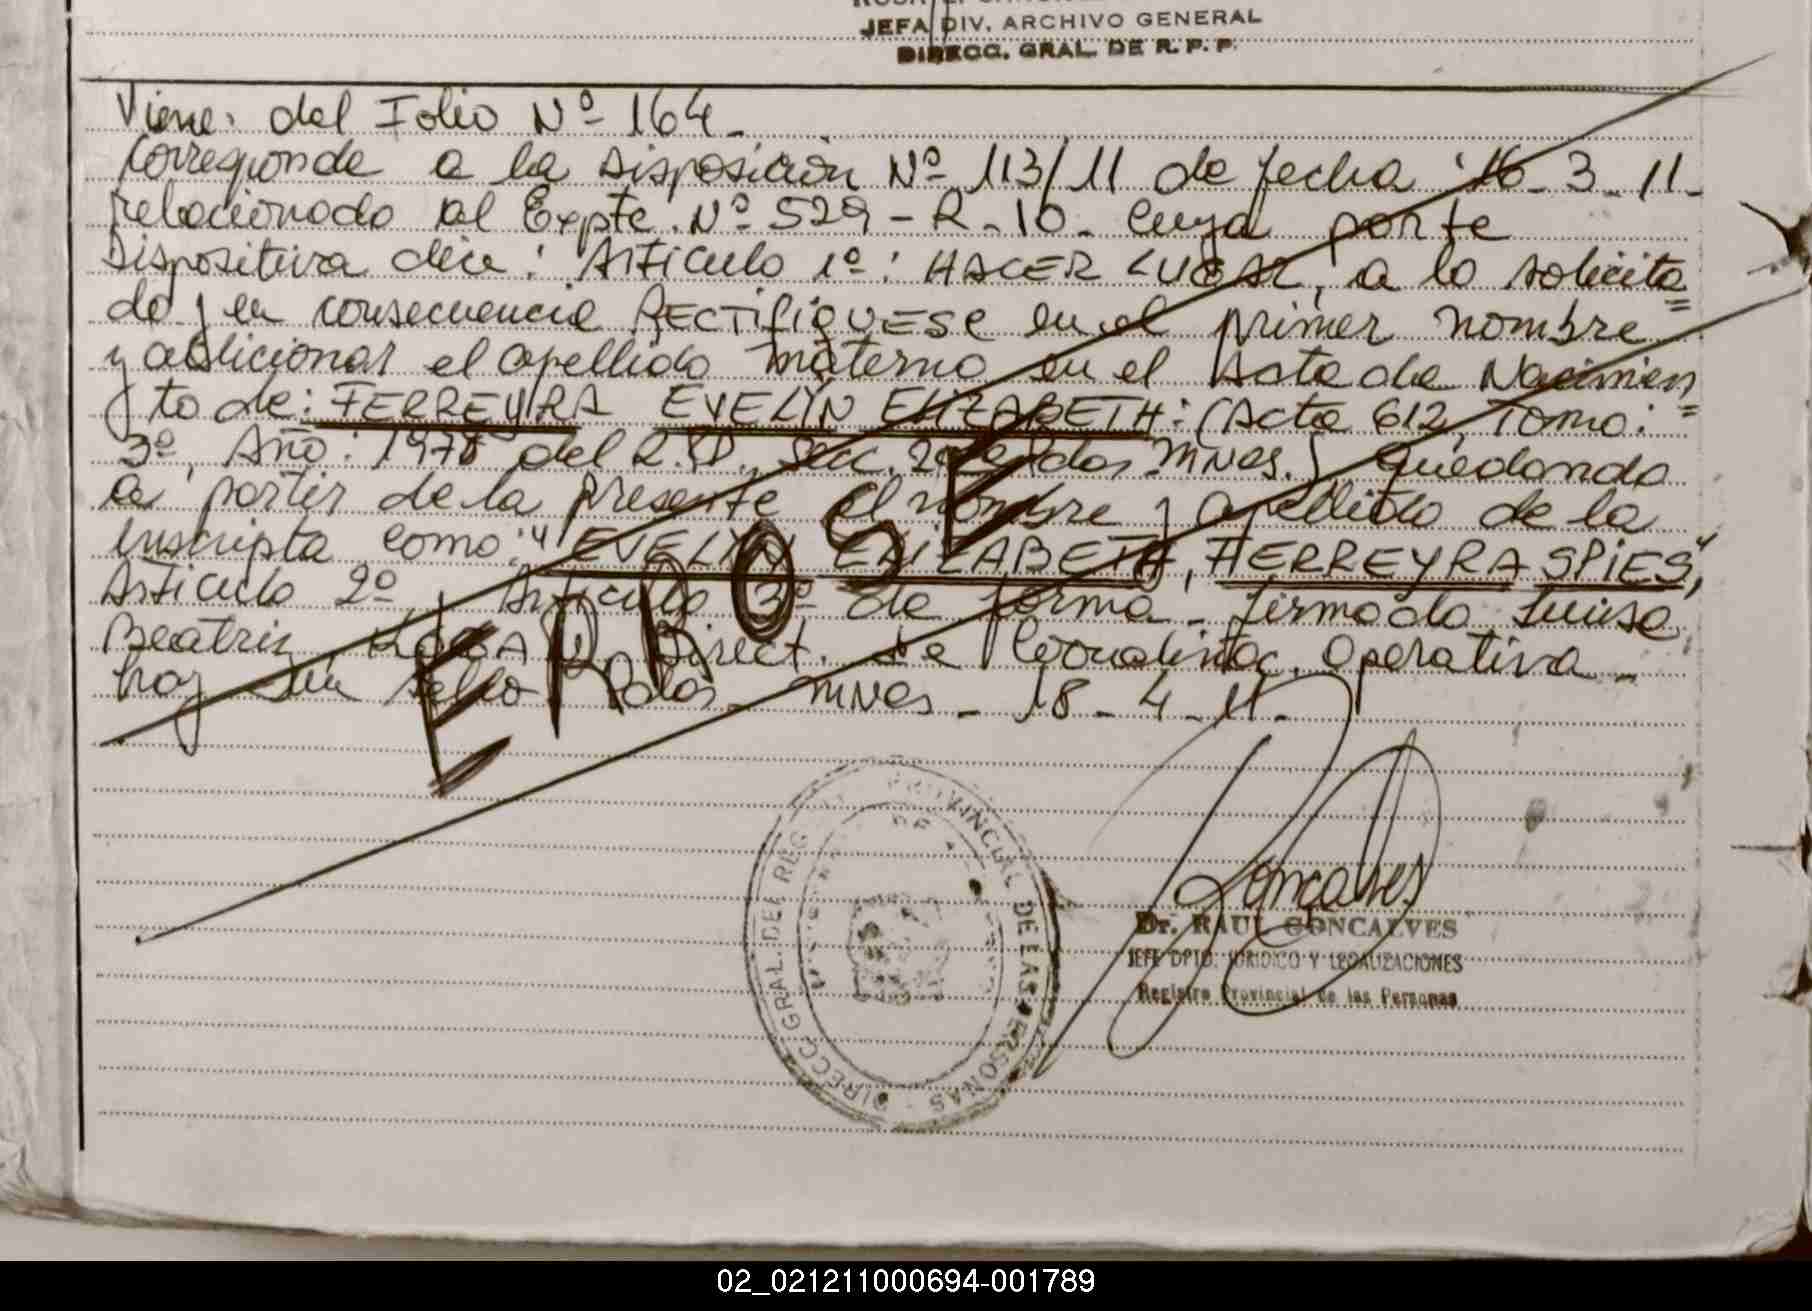 JEFA DIV. ARCHIVO GENERAL
DIRECC. GRAL. DE R. P. P.
Viene: del Folio Nº 164.
Corresponde a la Disposición Nº 113/11 de fecha 16-3-11-
relacionado al Expte. Nº 529-R-10- cuya parte
Dispositiva dice: Artículo 1º: HACER LUGAR, a lo solicita=
do y en consecuencia RECTIFIQUESE en el primer nombre
y adicionar el apellido materno en el Acta de Nacimien=
to de: FERREYRA EVELYN ELIZABETH: (Acta 612, Tomo:
3º, Año: 1978 del R.P., Secc. 2º Pdas. Mnes.) quedando
a partir de la presente el nombre y apellido de la
inscripta como: "EVELYN ELIZABETH, FERREYRA SPIES",
Artículo 2º y Artículo 3º de forma - firmado Luisa
Beatriz Direct. de Coordinac. Operativa -
hay un sello Pdas. Mnes - 18-4-11-
ERROSE
DIRECC. GRAL. DEL REG. PROVINCIAL DE LAS PERSONAS
Goncalves
Dr. RAUL GONCALVES
JEFE DPTO. JURIDICO Y LEGALIZACIONES
Registro Provincial de las Personas
02_021211000694-001789